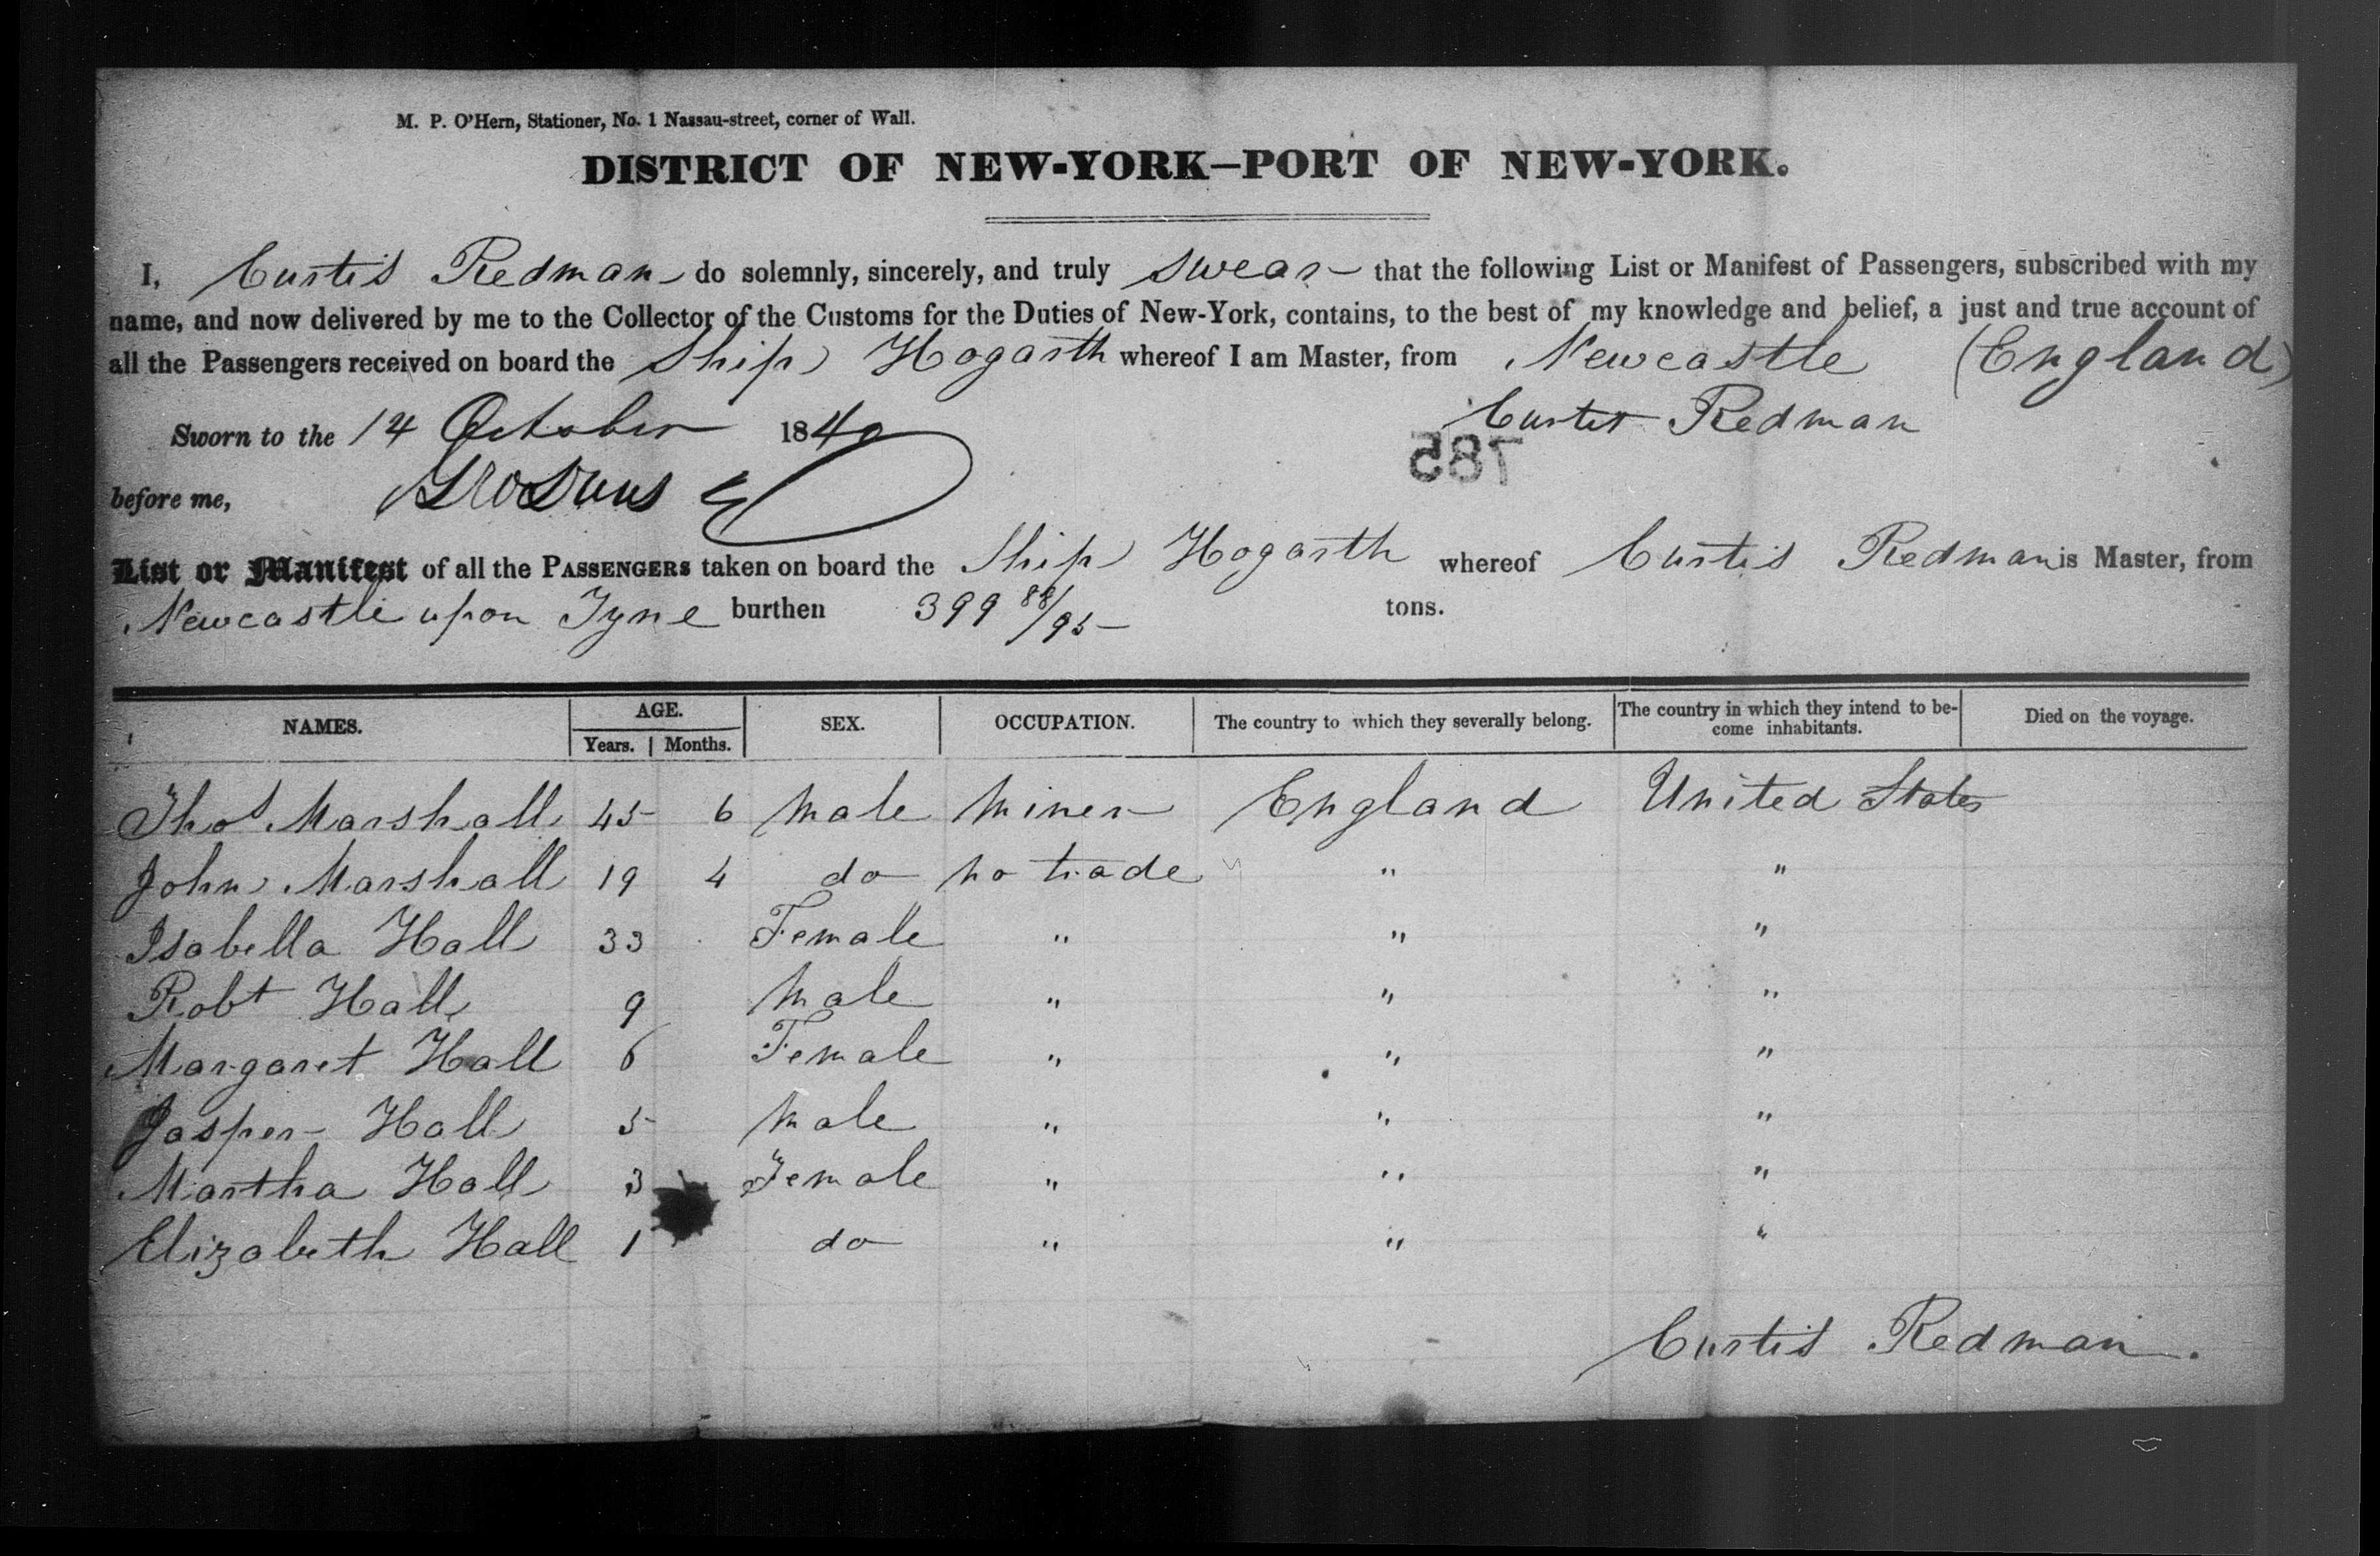 M. P. O'Hern, Stationer, No. 1 Nassau-street, corner of Wall.
DISTRICT OF NEW-YORK—PORT OF NEW-YORK.
I, Curtis Redman do solemnly, sincerely, and truly swear that the following List or Manifest of Passengers, subscribed with my
name, and now delivered by me to the Collector of the Customs for the Duties of New-York, contains, to the best of my knowledge and belief, a just and true account of
all the Passengers received on board the Ship Hogarth whereof I am Master, from Newcastle (England)
Sworn to the 14 October 1840 Curtis Redman
785
before me,
List or Manifest of all the PASSENGERS taken on board the Ship Hogarth whereof Curtis Redman is Master, from
Newcastle upon Tyne burthen 399 88/95 tons.
NAMES. AGE. SEX. OCCUPATION. The country to which they severally belong. The country in which they intend to be-
come inhabitants. Died on the voyage.
Years. Months.
Thos Marshall 45 6 Male Miner England United States
John Marshall 19 4 do no trade " "
Isabella Hall 33 Female " " "
Robt Hall 9 Male " " "
Margaret Hall 6 Female " " "
Jasper Hall 5 Male " " "
Martha Hall 3 Female " " "
Elizabeth Hall 1 do " " "
Curtis Redman.